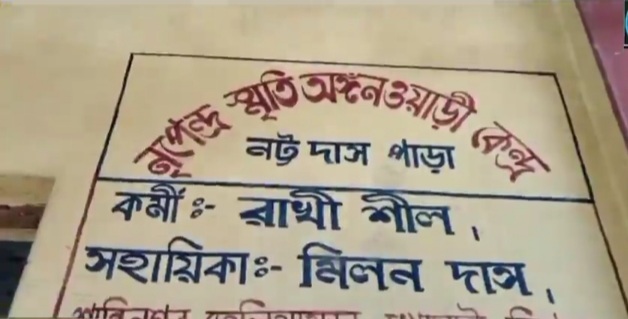 নৃপেন্দ্র স্মৃতি অঙ্গনওয়াড়ী কেন্দ্র
নট্ট দাস পাড়া
কর্মী ঃ- রাখী শীল ,
সহায়িকা ঃ- মিলন দাস ,